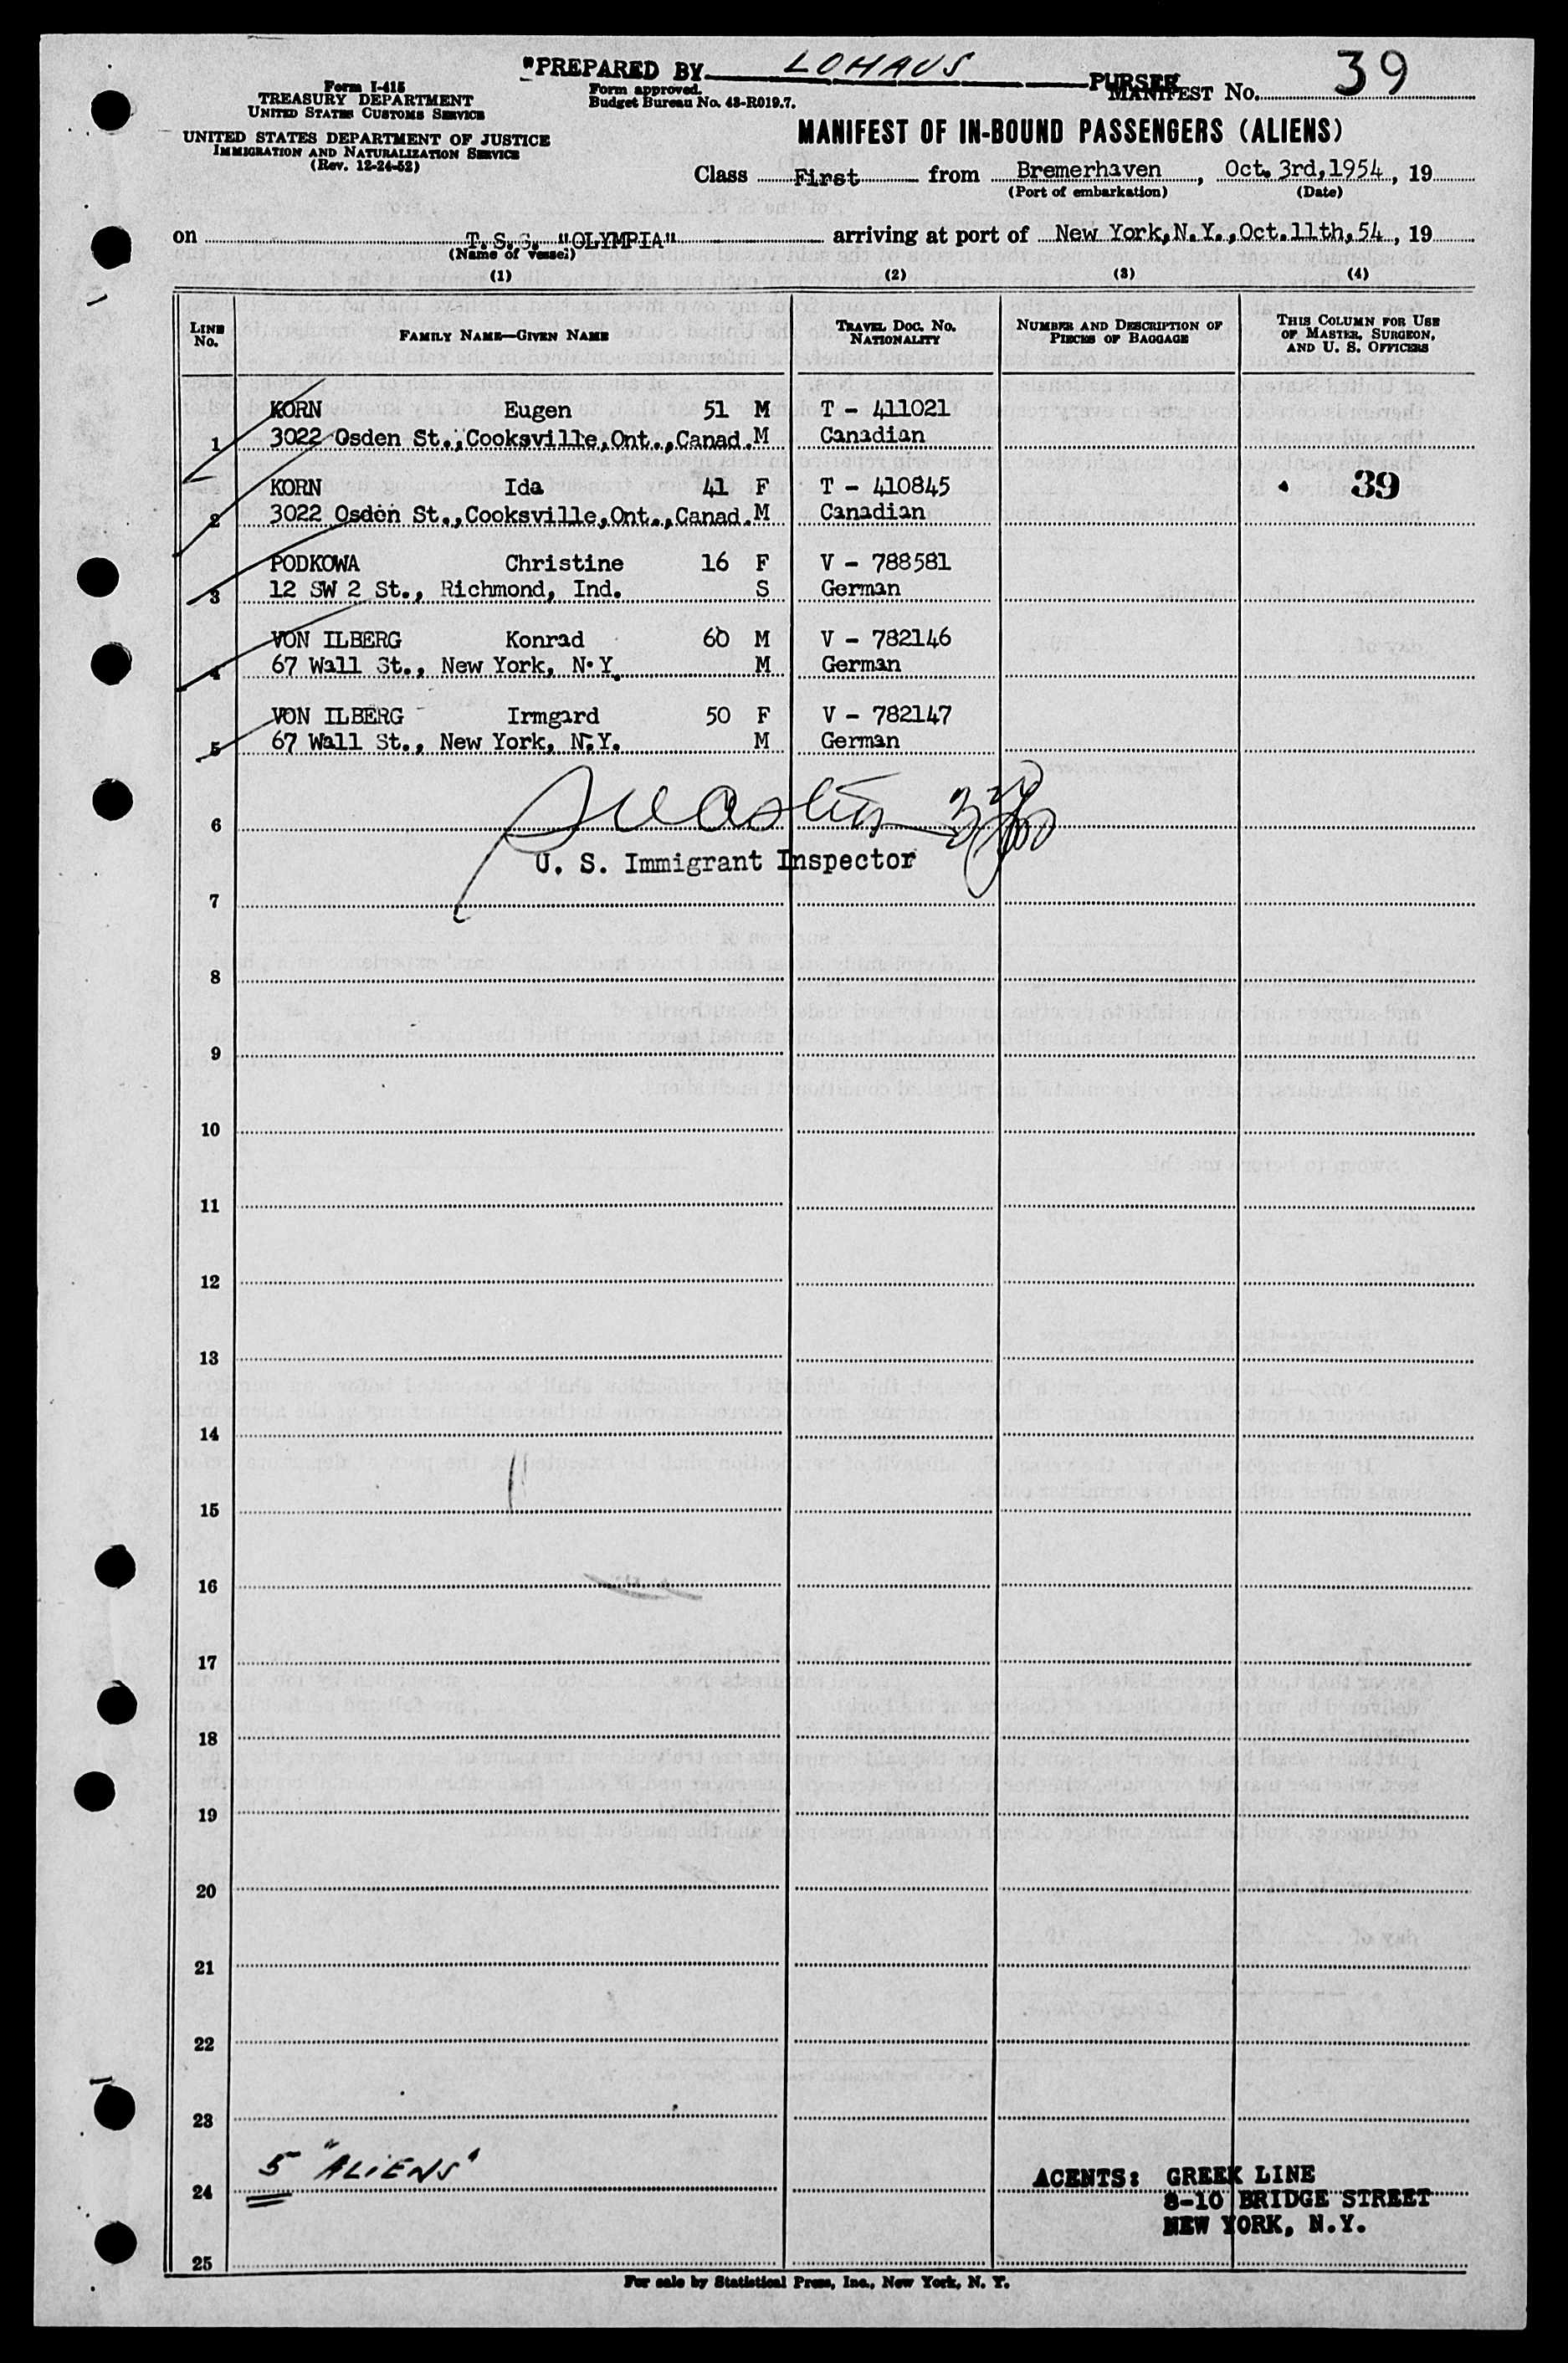 "PREPARED BY LOHAUS PURSER
Form I-415
TREASURY DEPARTMENT
UNITED STATES CUSTOMS SERVICE
UNITED STATES DEPARTMENT OF JUSTICE
IMMIGRATION AND NATURALIZATION SERVICE
(Rev. 12-24-52)
Form approved.
Budget Bureau No. 43-R019.7.
MANIFEST NO. 39
MANIFEST OF IN-BOUND PASSENGERS (ALIENS)
Class First from Bremerhaven, Oct. 3rd,1954, 19
(Port of embarkation) (Date)
on T.S.S. "OLYMPIA" arriving at port of New York,N.Y.,Oct.11th,54, 19
(Name of vessel)
(1) (2) (3) (4)
LINE No. FAMILY NAME—GIVEN NAME TRAVEL DOC. NO. NATIONALITY NUMBER AND DESCRIPTION OF PIECES OF BAGGAGE THIS COLUMN FOR USE OF MASTER, SURGEON, AND U. S. OFFICERS
KORN Eugen 51 M T - 411021
1 3022 Osden St.,Cooksville,Ont.,Canad.M Canadian
KORN Ida 41 F T - 410845 39
2 3022 Osden St.,Cooksville,Ont.,Canad.M Canadian
PODKOWA Christine 16 F V - 788581
3 12 SW 2 St., Richmond, Ind. S German
VON ILBERG Konrad 60 M V - 782146
4 67 Wall St., New York, N.Y. M German
VON ILBERG Irmgard 50 F V - 782147
5 67 Wall St., New York, N.Y. M German
6
U. S. Immigrant Inspector
7
8
9
10
11
12
13
14
15
16
17
18
19
20
21
22
23
5 "ALIENS"
24
AGENTS: GREEK LINE
8-10 BRIDGE STREET
NEW YORK, N.Y.
25
For sale by Statistical Press, Inc., New York, N. Y.